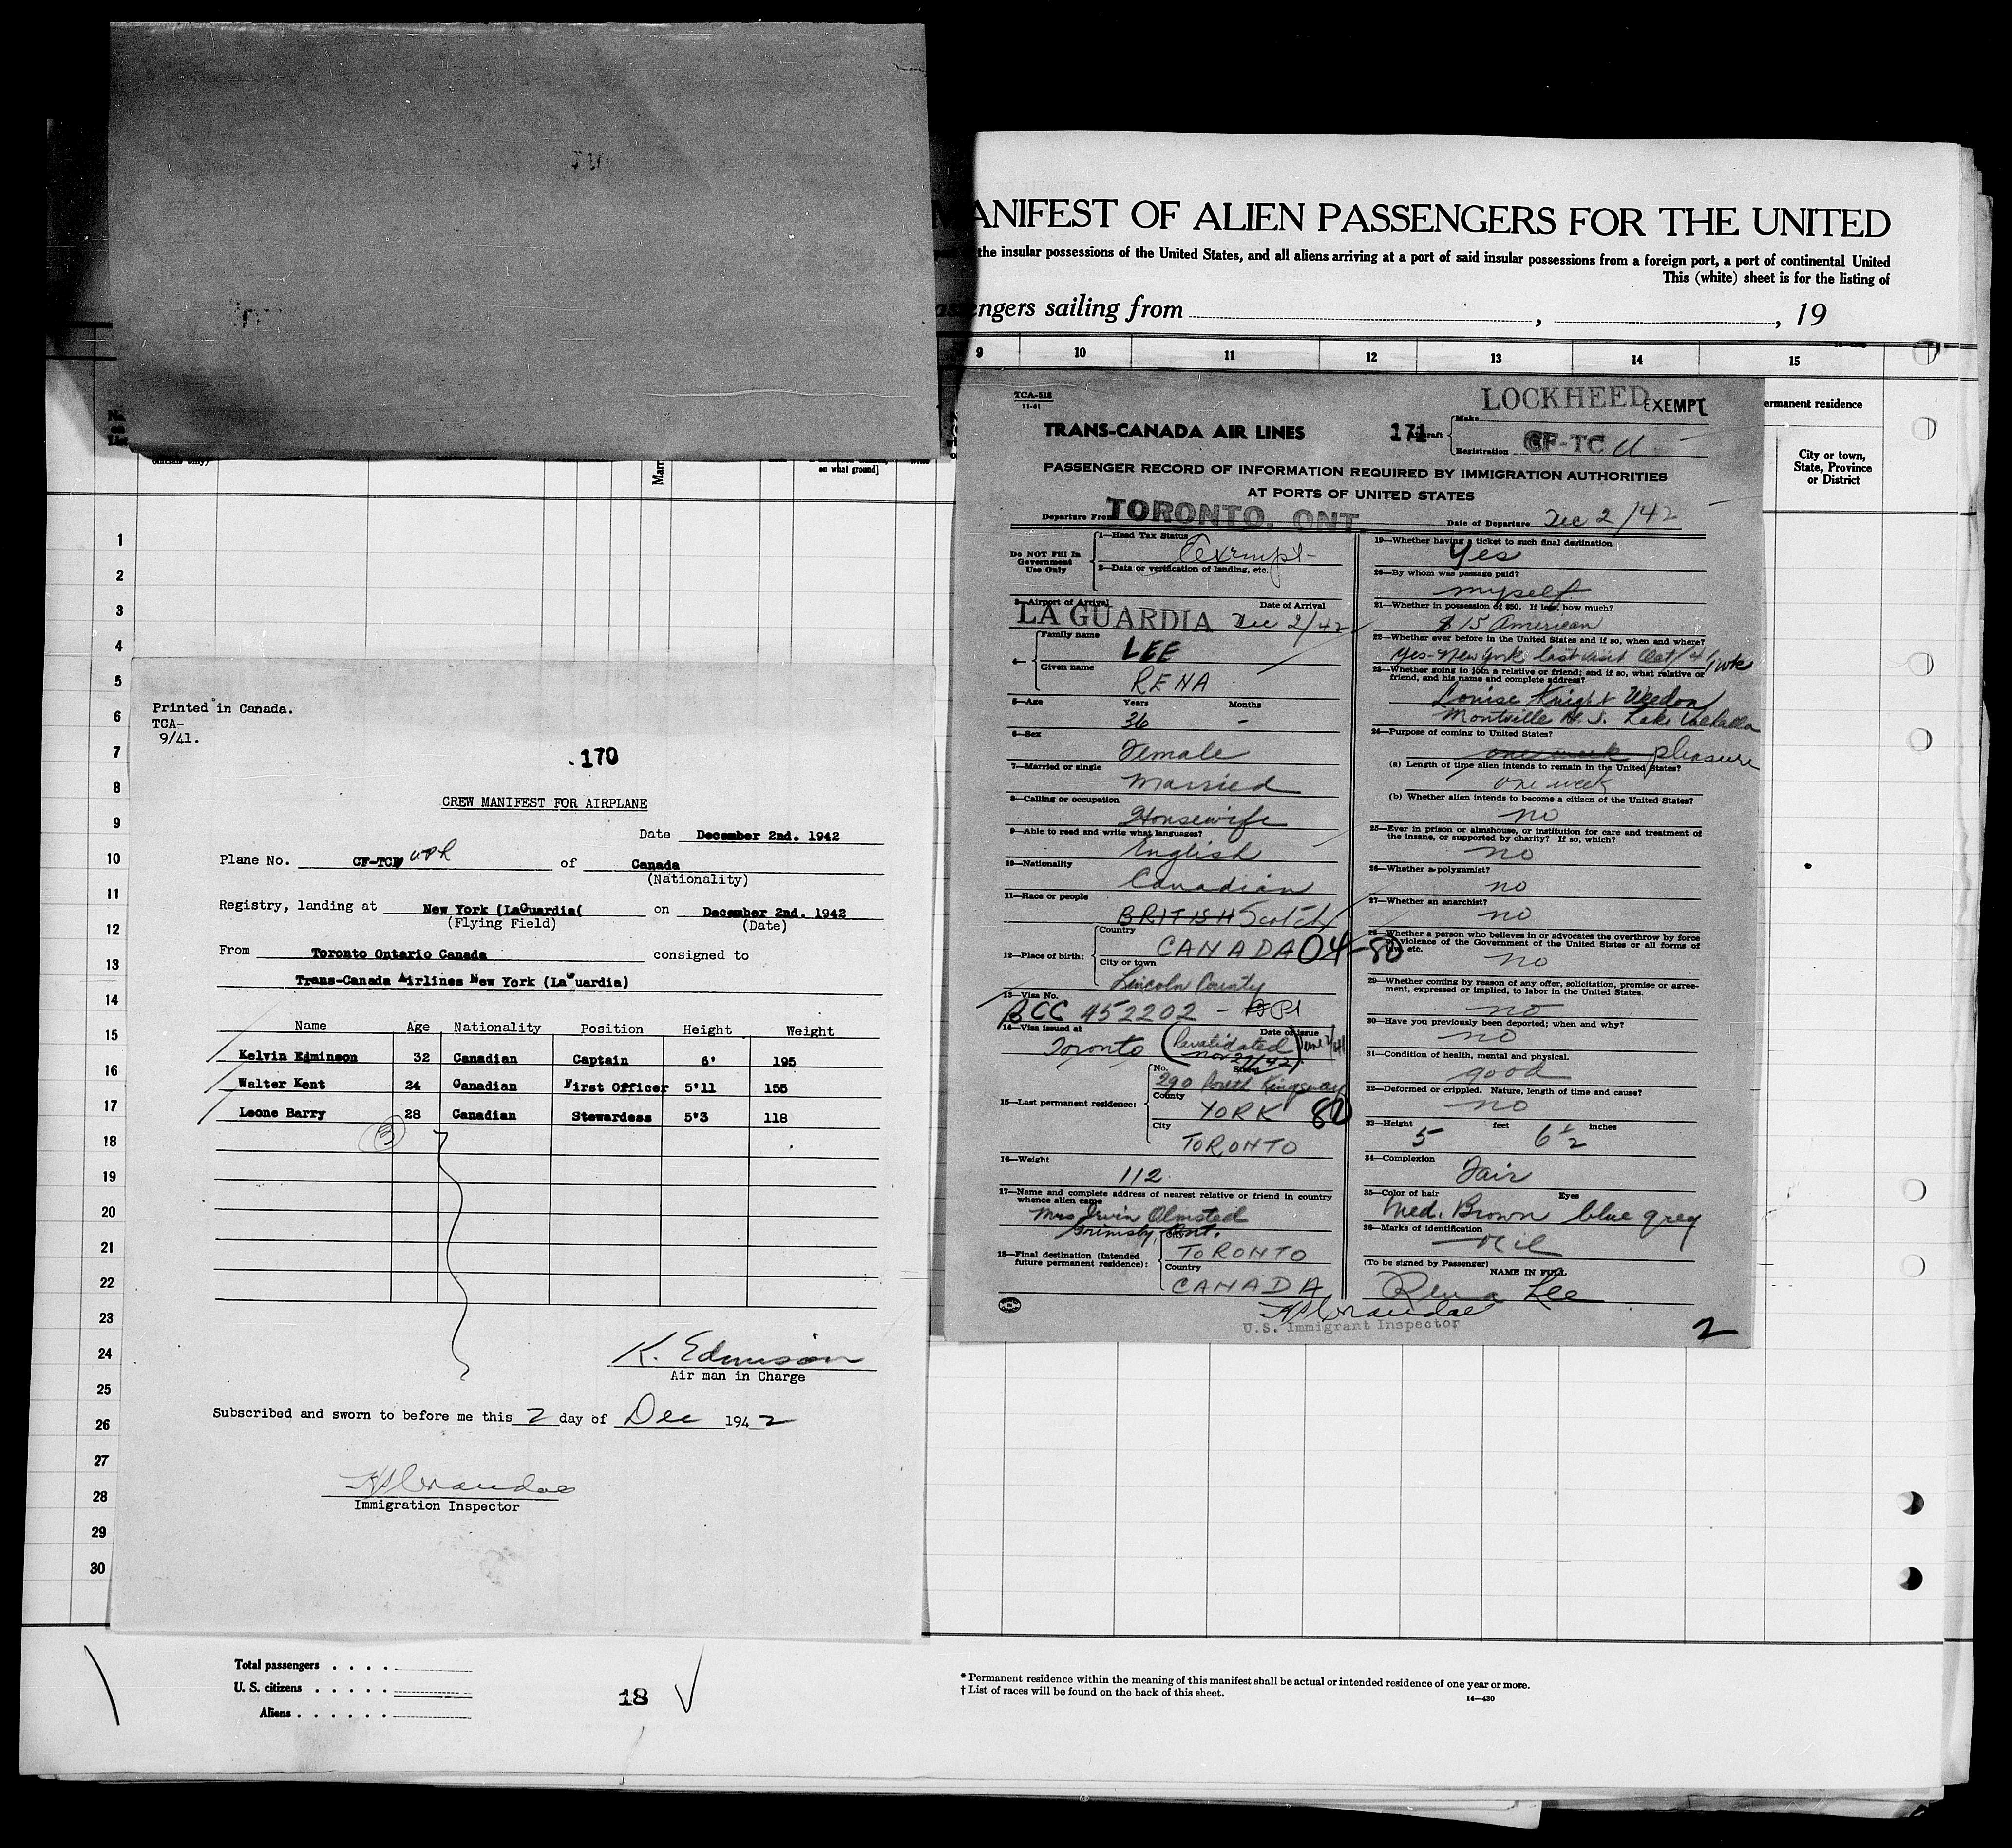 MANIFEST OF ALIEN PASSENGERS FOR THE UNITED
the insular possessions of the United States, and all aliens arriving at a port of said insular possessions from a foreign port, a port of continental United
This (white) sheet is for the listing of
passengers sailing from , , 19
9 10 11 12 13 14 15
No. on List
officials only)
on what ground]
permanent residence
City or town, State, Province or District
1
2
3
4
5
6
7
8
9
10
11
12
13
14
15
16
17
18
19
20
21
22
23
24
25
26
27
28
29
30
Printed in Canada.
TCA-
9/41.
170
CREW MANIFEST FOR AIRPLANE
Date December 2nd. 1942
Plane No. CF-TC of Canada
(Nationality)
Registry, landing at New York (LaGuardia( on December 2nd. 1942
(Flying Field) (Date)
From Toronto Ontario Canada consigned to
Trans-Canada Airlines New York (LaGuardia)
Name Age Nationality Position Height Weight
Kelvin Edminson 32 Canadian Captain 6' 195
Walter Kent 24 Canadian First Officer 5'11 155
Leone Barry 28 Canadian Stewardess 5'3 118
3
K. Edmison
Air man in Charge
Subscribed and sworn to before me this 2 day of Dec 1942
Immigration Inspector
Total passengers . . . .
U. S. citizens . . . . .
Aliens . . . . . .
18
* Permanent residence within the meaning of this manifest shall be actual or intended residence of one year or more.
† List of races will be found on the back of this sheet.
14—430
TCA-518
11-41
LOCKHEED EXEMPT
TRANS-CANADA AIR LINES
171
Aircraft Make
Registration CF-TC U
PASSENGER RECORD OF INFORMATION REQUIRED BY IMMIGRATION AUTHORITIES
AT PORTS OF UNITED STATES
Departure From TORONTO, ONT. Date of Departure Dec 2/42
Do NOT Fill In Government Use Only
1—Head Tax Status
Exempt
2—Data or verification of landing, etc.
3—Airport of Arrival Date of Arrival
LA GUARDIA Dec 2/42
4— Family name
LEE
Given name
RENA
5—Age Years Months
36 -
6—Sex
Female
7—Married or single
Married
8—Calling or occupation
Housewife
9—Able to read and write what languages?
English
10—Nationality
Canadian
11—Race or people
BRITISH Scotch
12—Place of birth: Country
CANADA 04-80
City or town
Lincoln County
13—Visa No.
BCC 452202
14—Visa issued at Date of issue
Toronto (Revalidated Nov 27/42) June
15—Last permanent residence: No. Street
290 South Kingsway
County
YORK 80
City
TORONTO
16—Weight
112
17—Name and complete address of nearest relative or friend in country whence alien came
Mrs Irvin Olmsted
Grimsby, Ont.
18—Final destination (Intended future permanent residence): City
TORONTO
Country
CANADA
19—Whether having ticket to such final destination
Yes
20—By whom was passage paid?
myself
21—Whether in possession of $50. If less, how much?
$15 American
22—Whether ever before in the United States and if so, when and where?
Yes-New York last visit Oct/41 1wk
23—Whether going to join a relative or friend; and if so, what relative or friend, and his name and complete address?
Louise Knight Weedon
Montville N.J. Lake Valhalla
24—Purpose of coming to United States?
one week pleasure
(a) Length of time alien intends to remain in the United States?
one week
(b) Whether alien intends to become a citizen of the United States?
no
25—Ever in prison or almshouse, or institution for care and treatment of the insane, or supported by charity? If so, which?
no
26—Whether a polygamist?
no
27—Whether an anarchist?
no
28—Whether a person who believes in or advocates the overthrow by force or violence of the Government of the United States or all forms of law, etc.
no
29—Whether coming by reason of any offer, solicitation, promise or agreement, expressed or implied, to labor in the United States.
no
30—Have you previously been deported; when and why?
no
31—Condition of health, mental and physical.
good
32—Deformed or crippled. Nature, length of time and cause?
no
33—Height 5 feet 6½ inches
34—Complexion
Fair
35—Color of hair Eyes
Med. Brown blue grey
36—Marks of identification
nil
(To be signed by Passenger) NAME IN FULL
Rena Lee
U.S. Immigrant Inspector
2